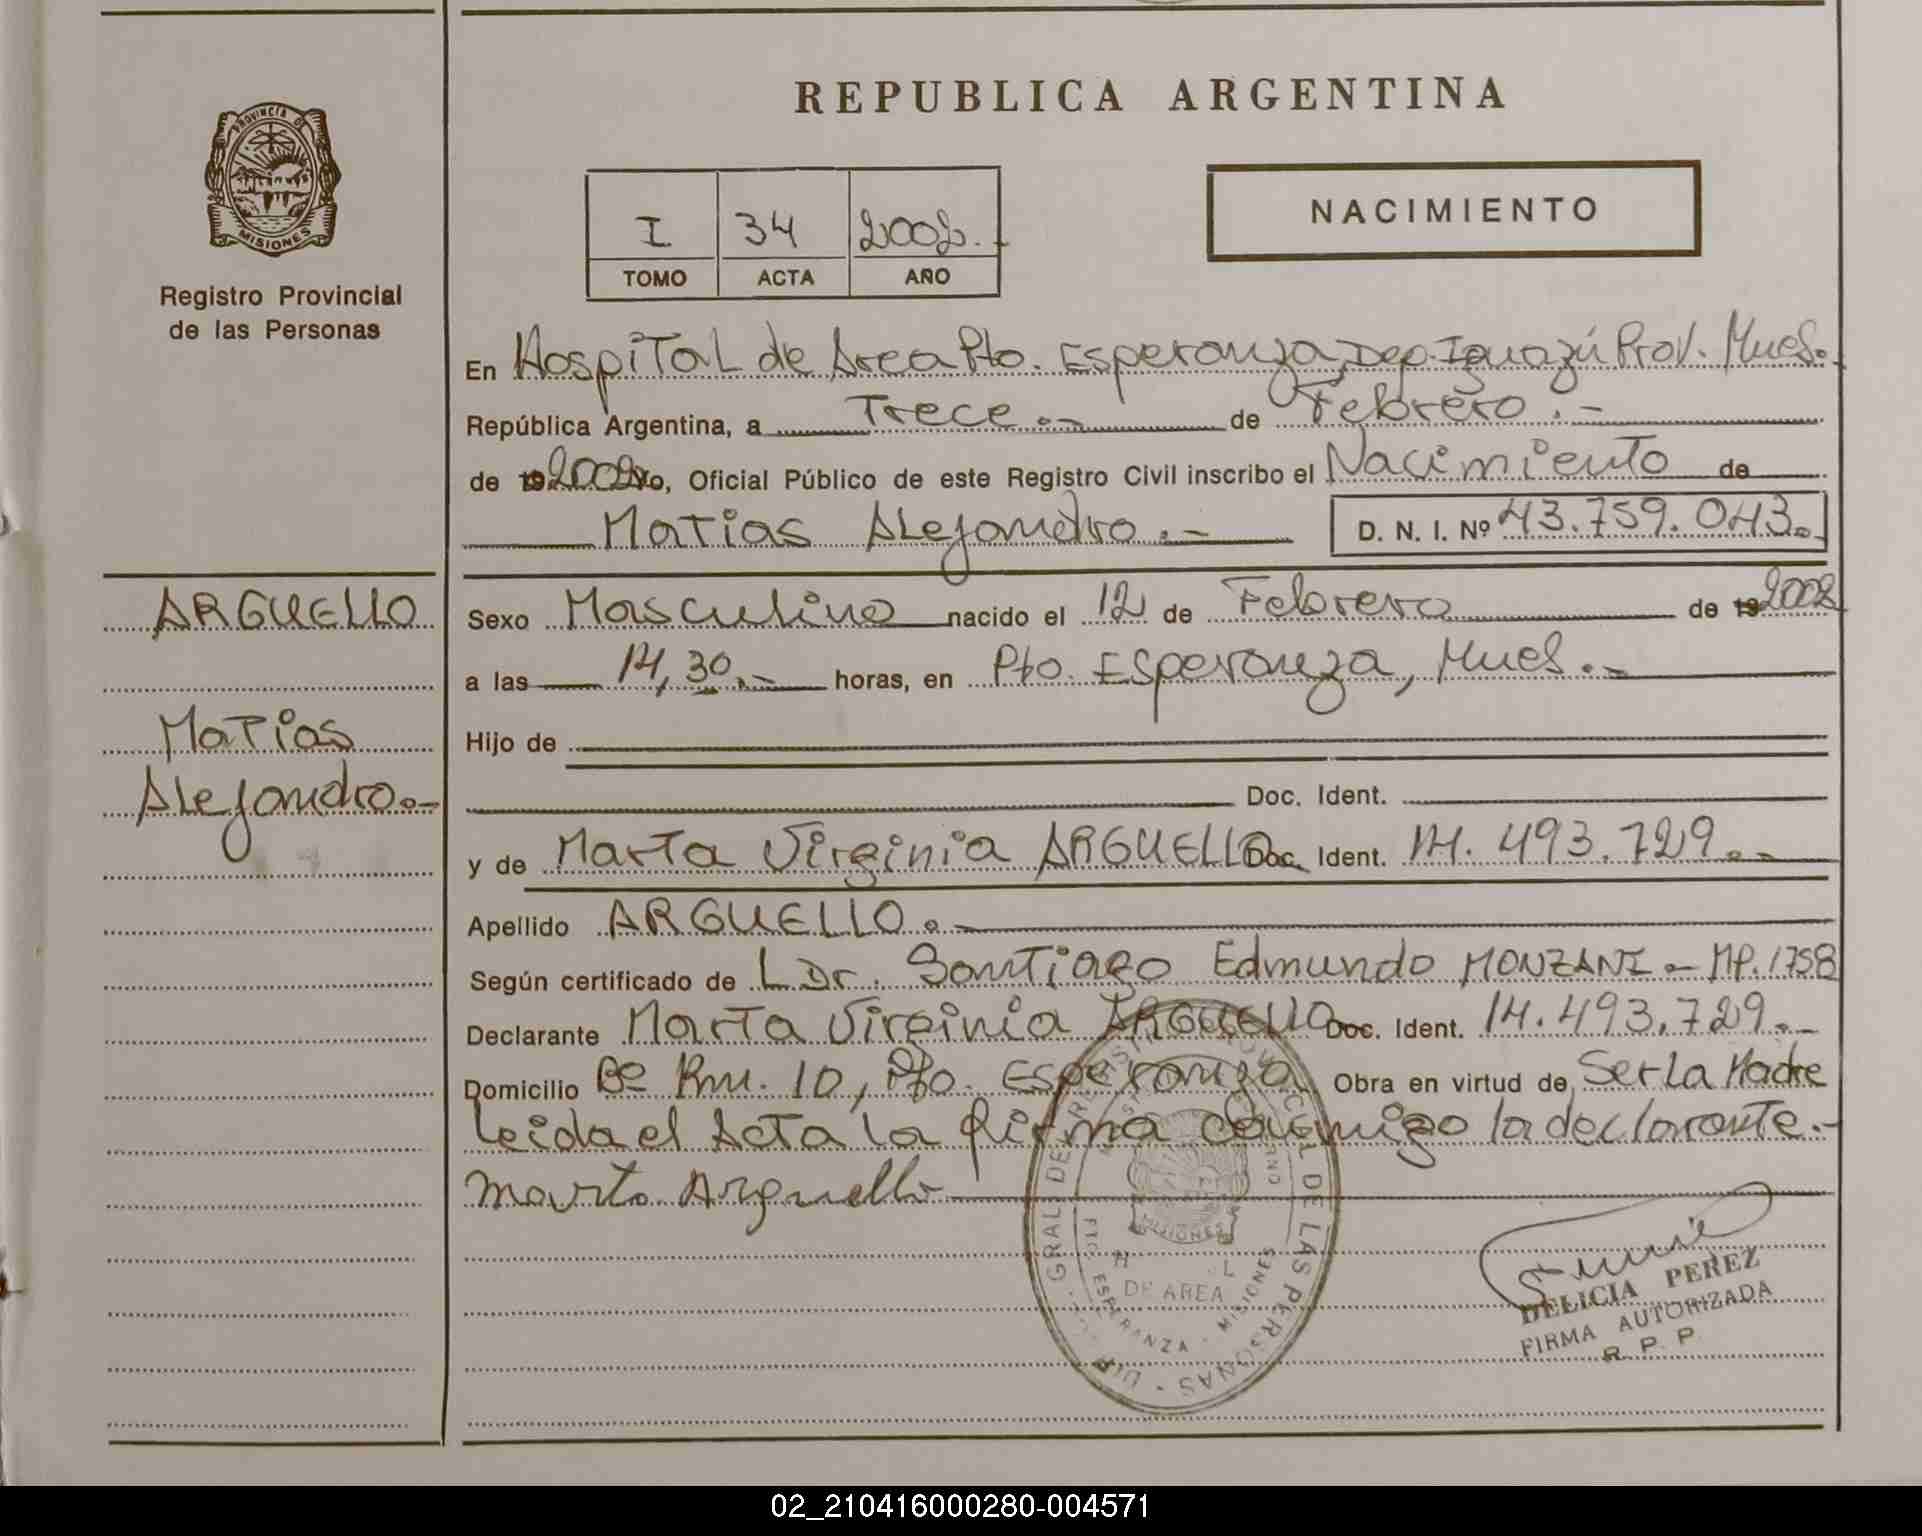 REPUBLICA ARGENTINA
PROVINCIA DE
MISIONES
Registro Provincial
de las Personas
I 34 2002.-
TOMO ACTA AÑO
NACIMIENTO
En Hospital de Area Pto. Esperanza, Dep. Iguazú Prov. Mnes.-
República Argentina, a Trece.- de Febrero.-
de 2002 Yo, Oficial Público de este Registro Civil inscribo el Nacimiento de
Matias Alejandro.- D. N. I. Nº 43.759.043.
ARGUELLO
Matias
Alejandro.-
Sexo Masculino nacido el 12 de Febrero de 19 2002
a las 14,30.- horas, en Pto. Esperanza, Mnes.-
Hijo de
Doc. Ident.
y de Marta Virginia ARGUELLO Doc. Ident. 14.493.729.-
Apellido ARGUELLO.-
Según certificado de Dr. Santiago Edmundo MONZANI - MP. 1758
Declarante Marta Virginia ARGUELLO Doc. Ident. 14.493.729.-
Domicilio Bº Km. 10, Pto. Esperanza Obra en virtud de Ser La Madre
Leida el Acta la firma conmigo la declarante.-
Marta Arguello
GRAL. DE LAS PERSONAS
MISIONES
DE AREA
ESPERANZA - MISIONES
DELICIA PEREZ
FIRMA AUTORIZADA
R. P. P
02_210416000280-004571